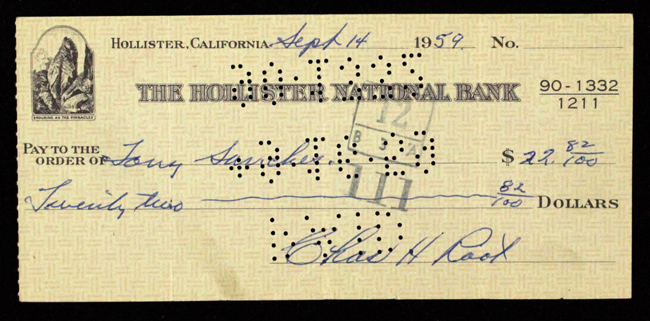 HOLLISTER, CALIFORNIA Sept 14 1959 No.
THE HOLLISTER NATIONAL BANK
90-1332
1211
12
B 3 A
111
PAY TO THE ORDER OF Tony Sanchez $22 82/100
Twenty two 82/100 DOLLARS
Chas H Root
ENDURING AS THE PINNACLES